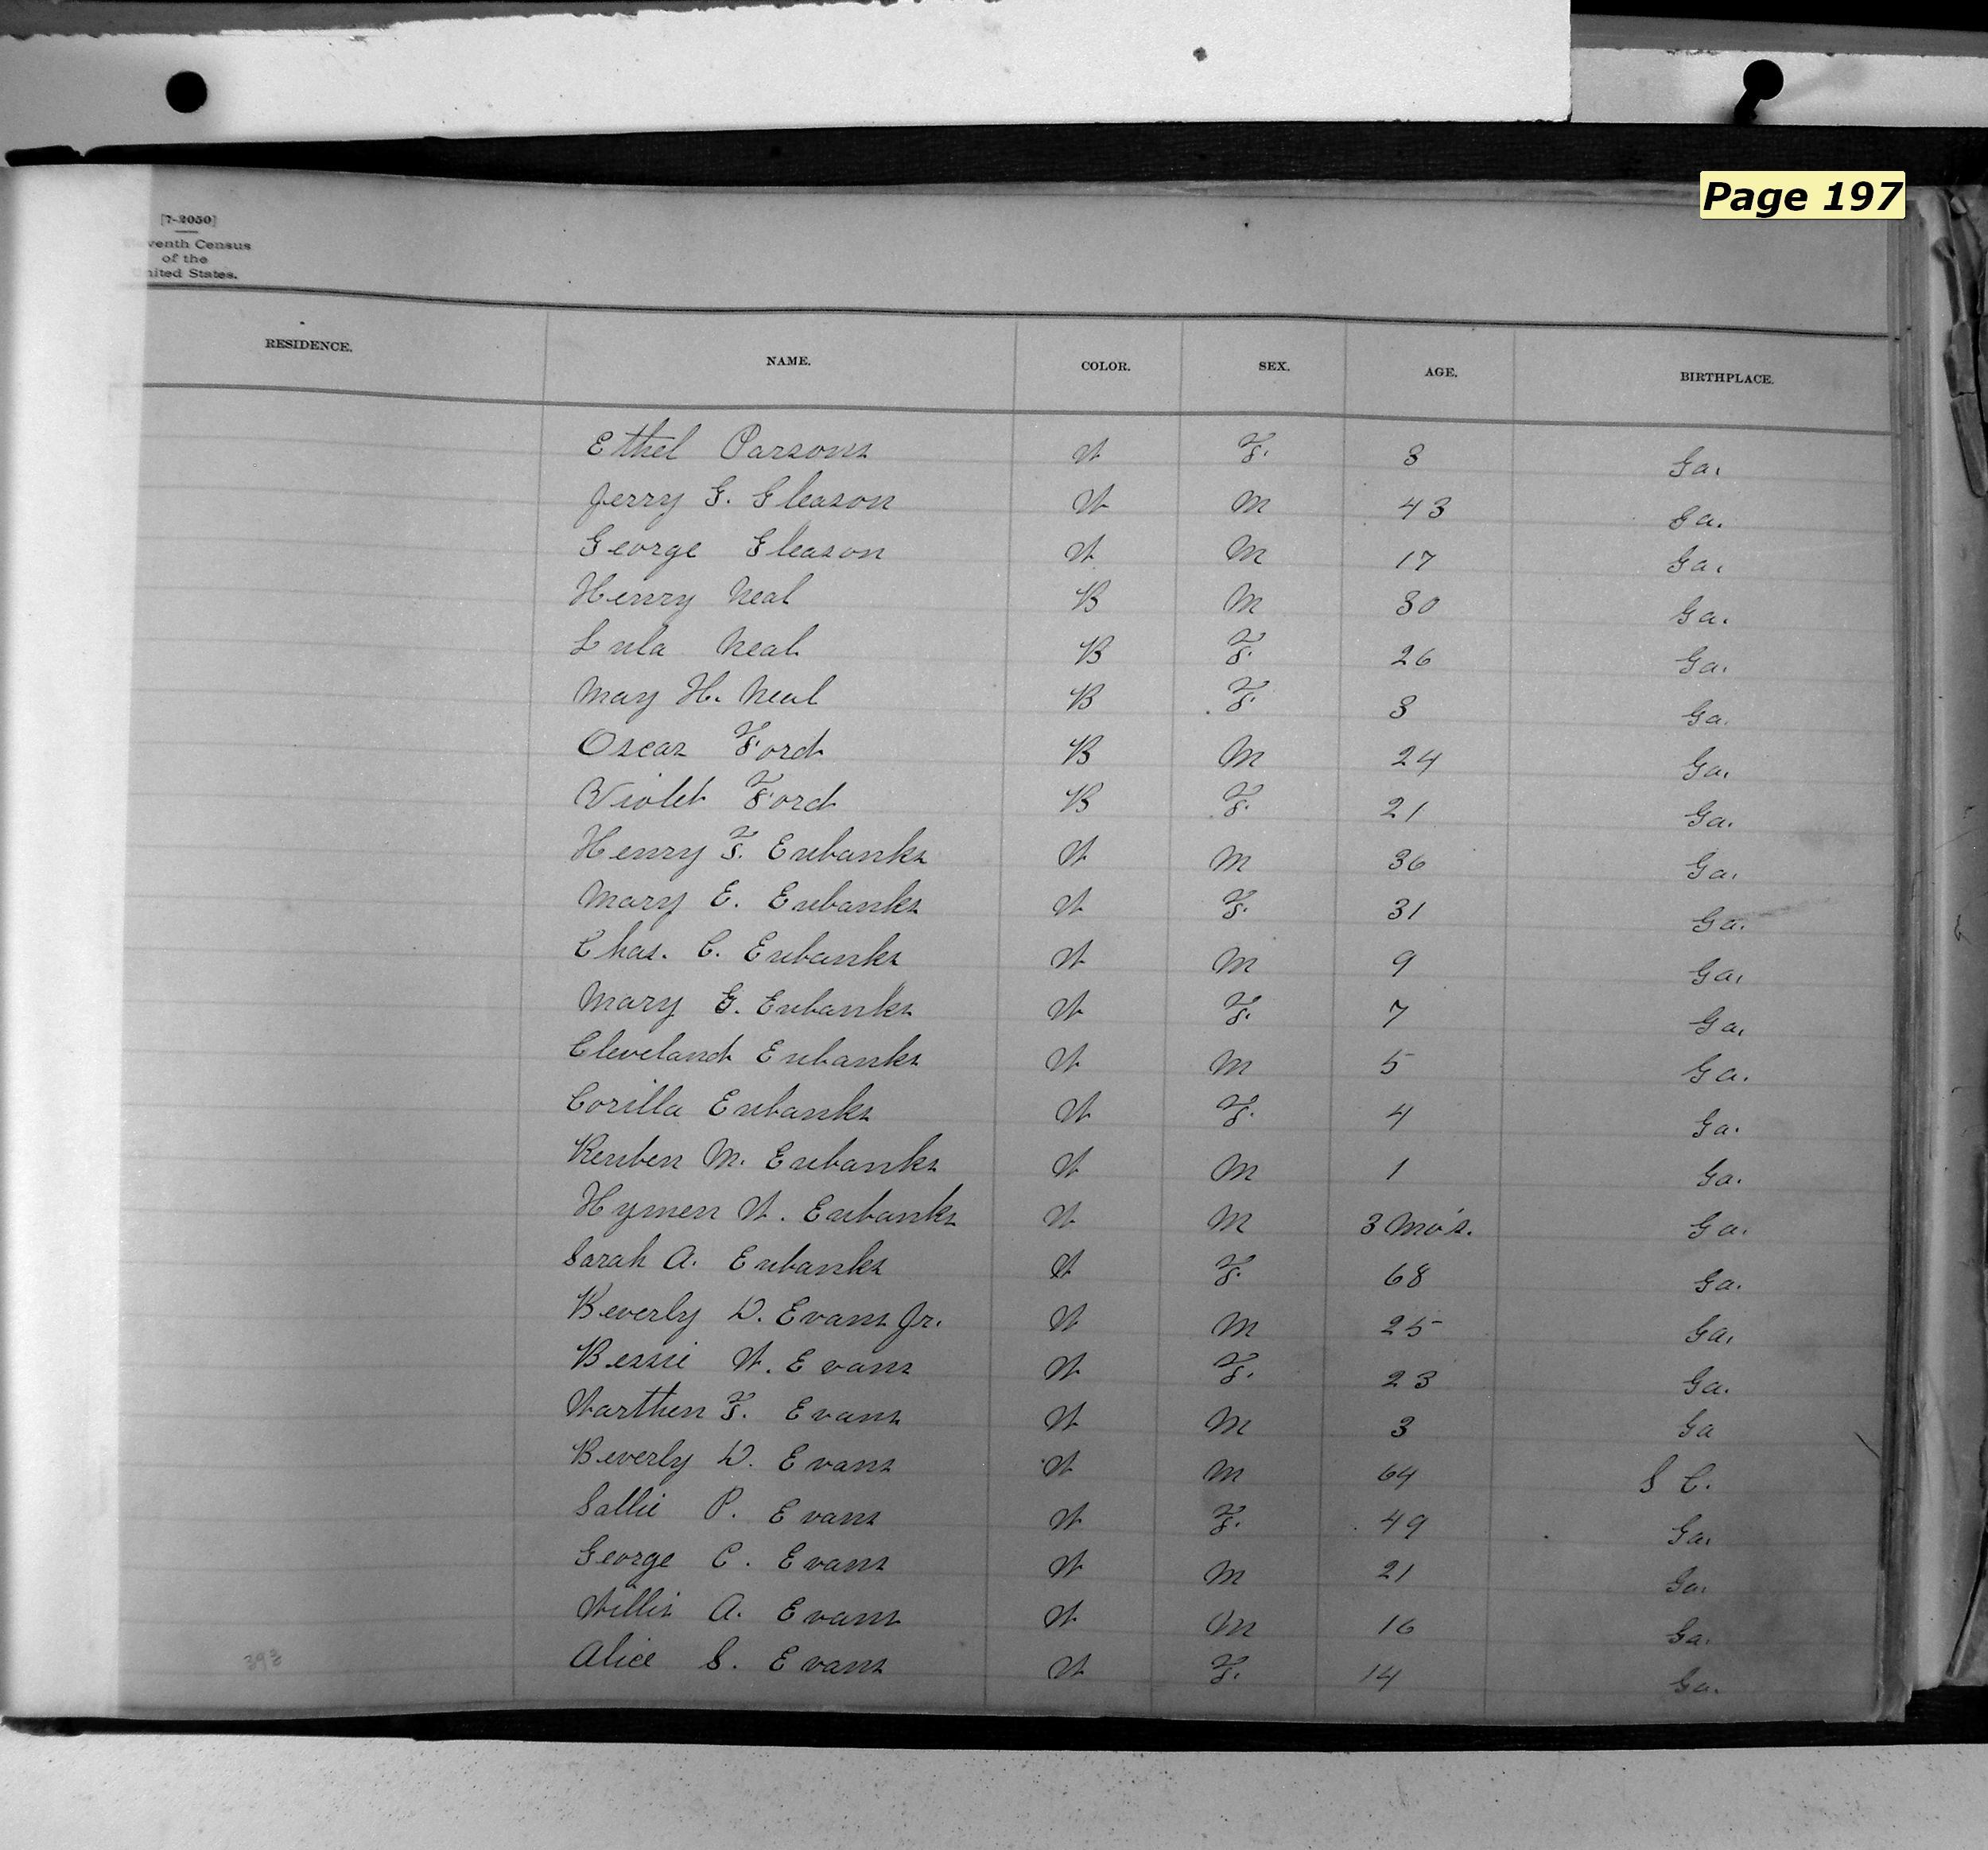 Page 197
[7-2050]
venth Census
of the
nited States.
RESIDENCE. NAME. COLOR. SEX. AGE. BIRTHPLACE.
Ethel Parsons W F. 8 Ga.
Jerry G. Gleason W M 43 Ga.
George Gleason W M 17 Ga.
Henry Neal B M 30 Ga.
Lula Neal B F. 26 Ga.
May H. Neal B F. 3 Ga.
Oscar Ford B M 24 Ga.
Violet Ford B F. 21 Ga.
Henry F. Eubanks W M 36 Ga.
Mary E. Eubanks W F. 31 Ga.
Chas. C. Eubanks W M 9 Ga.
Mary G. Eubanks W F. 7 Ga.
Cleveland Eubanks W M 5 Ga.
Corilla Eubanks W F. 4 Ga.
Reuben M. Eubanks W M 1 Ga.
Hymen W. Eubanks W M 3 Mo's. Ga.
Sarah A. Eubanks W F. 68 Ga.
Beverly D. Evans Jr. W M 25 Ga.
Bessie W. Evans W F. 23 Ga.
Warthen F. Evans W M 3 Ga
Beverly D. Evans W M 64 S C.
Sallie P. Evans W F. 49 Ga.
George C. Evans W M 21 Ga.
Willis A. Evans W M 16 Ga.
Alice S. Evans W F. 14 Ga.
393